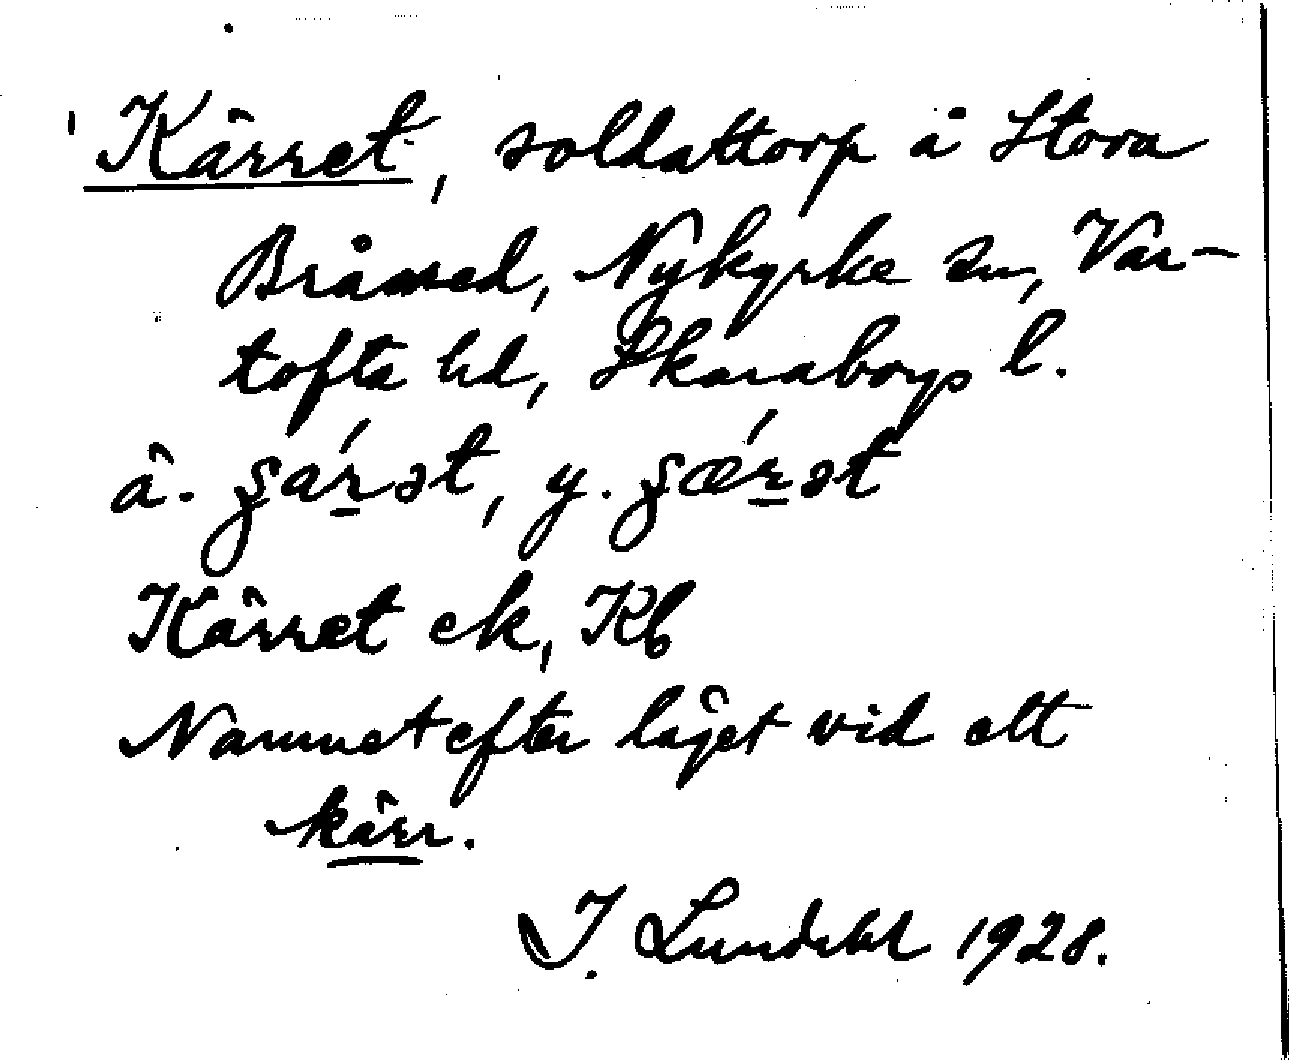 Kärret, soldattorp å Stora
Bråmed, Nykyrke sn, Var-
tofta hd, Skaraborgs l.
ä. ʂár̲ət, y. ʂǽr̲ət
Kärret ek, Kb
Namnet efter läget vid ett
kärr.
J. Lundahl 1928.